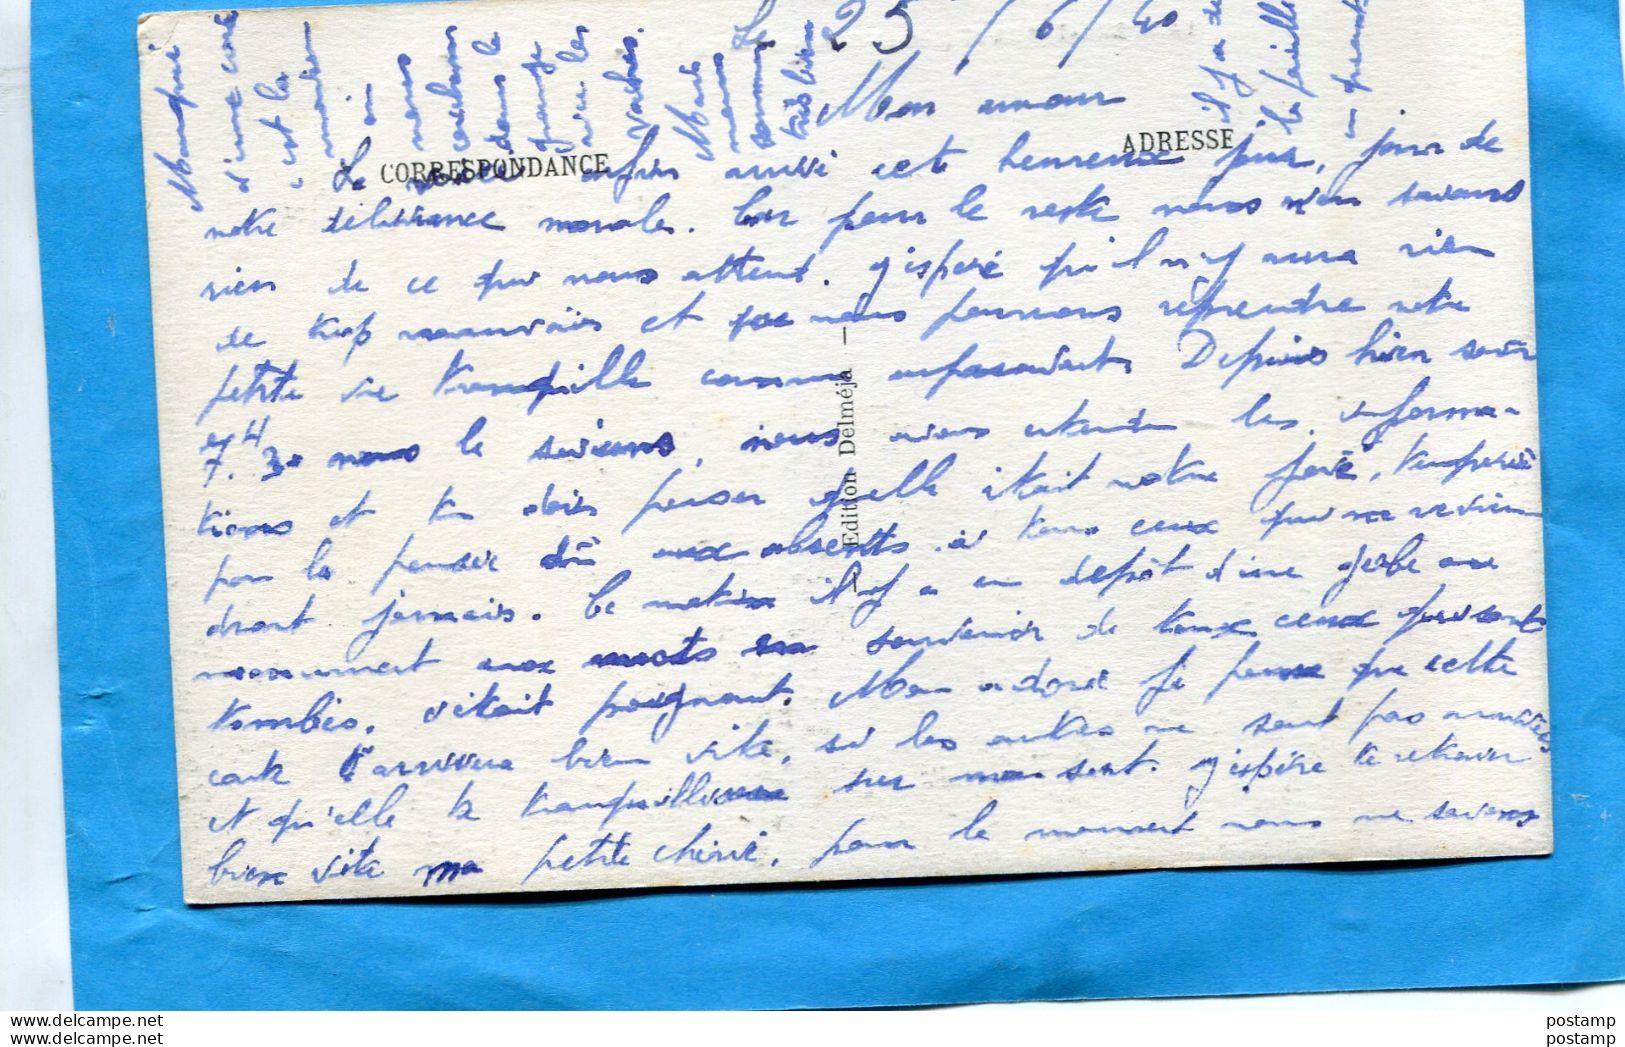 Le 25/6/40
Mon amour
CORRESPONDANCE
ADRESSE
Le voici enfin arrivé cet heureux jour, jour de
notre délivrance morale. Car pour le reste nous n'en savons
rien de ce qui nous attend. J'espère qu'il n'y aura rien
de trop mauvais et que nous pourrons reprendre notre
petite vie tranquille comme auparavant. Depuis hier soir
7.30 nous le savions, nous avons entendu les informa-
tions et tu dois penser quelle était notre joie,
par la pensée dû aux absents. à tous ceux qui ne revien
dront jamais. Ce matin il y a un dépôt d'une gerbe au
monument aux morts en souvenir de tous ceux qui sont
tombés. c'était poignant. Mon adoré je pense que cette
carte t'arrivera bien vite, si les autres ne sont pas arrivées
et qu'elle te tranquillisera sur mon sort. J'espère te retrouver
bien vite ma petite chérie, pour le moment nous ne savons
Edition Delméja
nous
couchons
dans la
grange
avec les
vaches.
Mais
nous
sommes
très bien
il y a de
la paille
postamp
www.delcampe.net
postamp
www.delcampe.net